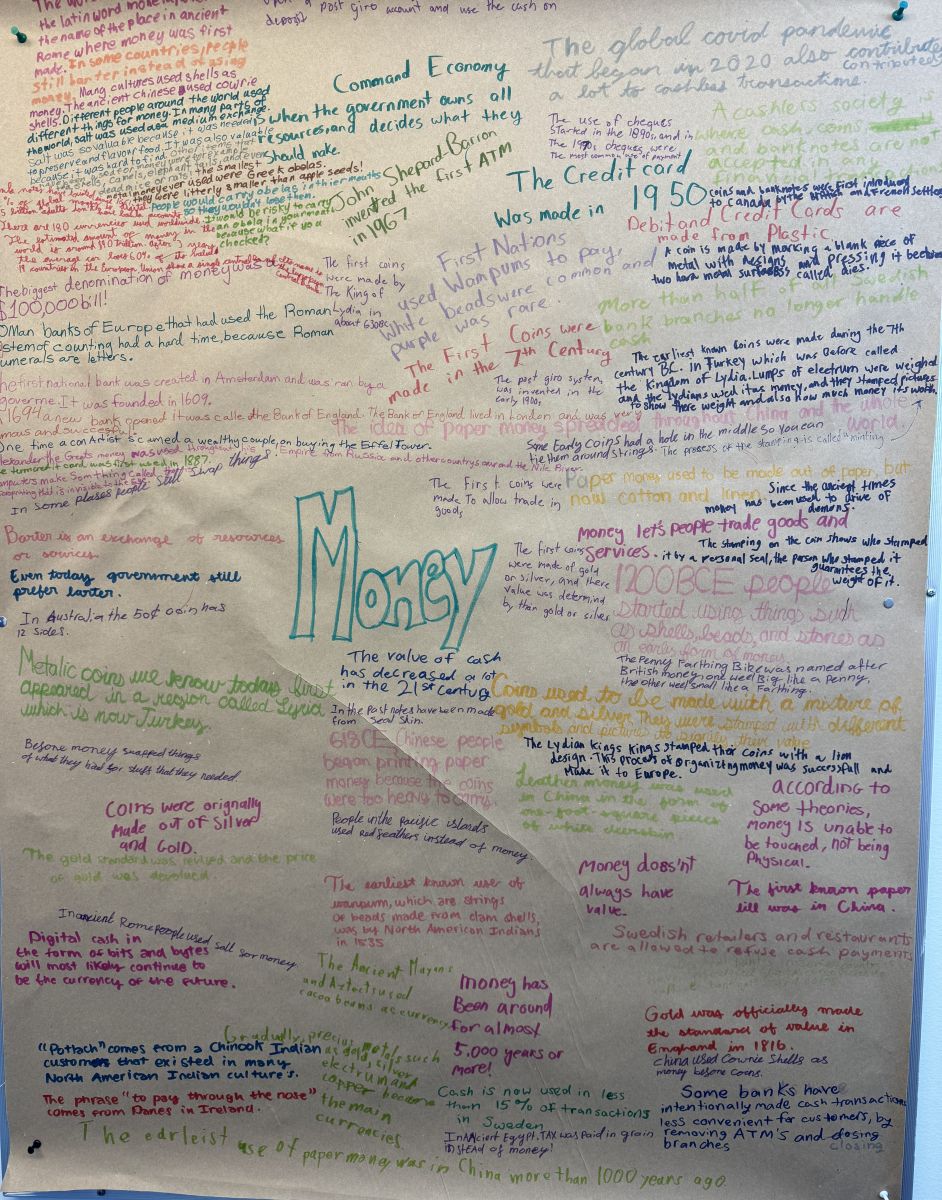 the latin word
the name of the place in ancient
Rome where money was first
made. In some countries, people
still barter instead of using
money. Many cultures used shells as
money. The ancient Chinese used cowrie
shells. Different people around the world used
different things for money. In many parts of
the world, salt was used as a medium exchange.
Salt was so valuable because it was needed
to preserve and flavor food. It was also valuable
because it was hard to find.
a post giro account and use the cash on
deposit
The global covid pandemic
that began in 2020 also contributed
a lot to cashless transactions.
Command Economy
is when the government owns all
resources, and decides what they
should make.
The use of cheques
started in the 1890s, and in
The 1990s cheques were
The most common use of payment
A cashless society is
where cash, coins and
banknotes are not
accepted in any
John Shepard-Barron
invented the first ATM
in 1967
The Credit card
Was made in 1950
coins and banknotes were first introduced
to Canada by the British and French settlers
Debit and Credit Cards are
made from Plastic
A coin is made by marking a blank piece of
metal with designs and pressing it between
two hard metal surfaces called dies.
the smallest
money ever used were Greek obolas.
they were litterly smaller than apple seeds!
People would carry obelas in thier mouths
so they wouldn't lose them.
It would be risky to carry
an obola in your mouth
because what if you
chocked?
There are 190 currencies used worldwide
The estimated amount of money in the
world is around $90 trillion. After 3 years
the average car loses 60% of its value
19 countries in the European Union
The biggest denomination of money was a
$100,000 bill!
The first coins
were made by
The King of
Lydia in
about 630BC
First Nations
used Wampums to pay,
White beads were common and
purple was rare.
More than half of all Swedish
bank branches no longer handle
cash
Man banks of Europe that had used the Roman
stem of counting had a hard time, because Roman
umerals are letters.
The First Coins were
made in the 7th Century
The earliest known coins were made during the 7th
century BC. In Turkey which was before called
the kingdom of Lydia. Lumps of electrum were weighed
and the Lydians used it as money, and they stamped pictures
to show there weight and also how much money its worth.
The post giro system,
was invented in the
early 1900s,
he first national bank was created in Amsterdam and was ran by a
governme. It was founded in 1609.
1694 a new bank opened it was calle the Bank of England. The Bank of England lived in London and was very
mous and successful
The idea of paper money spreaded throughout China and the whole
world.
One time a con Artist scamed a wealthy couple, on buying the Effel Tower.
Alexander the Greats money was used throughout his Empire from Russia and other countrys around the Nile River.
card was first used in 1887.
In some plases people still swap things
Some Early coins had a hole in the middle so you can
tie them around strings. The process of the stamping is called "minting
The First coins were
made To allow trade in
goods,
Paper money used to be made out of paper, but
now cotton and linen.
Since the ancient times
money has been used to drive of
demons.
Barter is an exchange of resources
or services.
Money
Money let's people trade goods and
services.
The stamping on the coin shows who stamped
it by a personal seal, the person who stamped it
guarantees the
weight of it.
The first coins
were made of gold
or silver, and there
value was determind
by than gold or silver
Even today government still
prefer barter.
1200BCE people
started using things such
as shells, beads, and stones as
an early form of money.
In Australia the 50¢ coin has
12 sides.
Metalic coins we know today first
appeared in a region called Lydia
which is now Turkey.
The value of cash
has decreased a lot
in the 21st century
The Penny Farthing Bike was named after
British money, one weel Big like a penny,
the other weel small like a Farthing.
In the past notes have been made
from seal skin.
Coins used to be made with a mixture of
gold and silver. They were stamped with different
symbols and pictures to signify their value
Before money swapped things
of what they had for stuff that they needed
618CE, Chinese people
began printing paper
money because the coins
were too heavy to carry.
The Lydian kings kings stamped their coins with a lion
design. This process of organizing money was successfull and
made it to Europe.
Leather money was used
in China in the form of
one-foot-square pieces
of white deerskin
according to
some theories,
money is unable to
be touched, not being
physical.
Coins were orignally
Made out of Silver
and Gold.
People in the pacific islands
used red feathers instead of money
The gold standard was revised and the price
of gold was devalued.
Money does'nt
always have
value.
The first known paper
bill was in China.
The earliest known use of
wampum, which are strings
of beads made from clam shells,
was by North American Indians
in 1535
In ancient Rome people used salt for money
Swedish retailers and restaurants
are allowed to refuse cash payments
Digital cash in
the form of bits and bytes
will most likely continue to
be the currency of the future.
The Ancient Mayans
and Aztects used
cacoa beans as currency
Money has
Been around
for almost
5.000 years or
more!
Gold was officially made
the standard of value in
England in 1816.
China used Cowrie Shells as
money before coins.
Gradually, precious metals such
as gold, silver,
electrum and
copper became
the main
currencies
"Potlach" comes from a Chinook Indian
customer that existed in many
North American Indian culture's.
The phrase "to pay through the nose"
comes from Danes in Ireland.
Cash is now used in less
than 15% of transactions
in Sweden
In ANcient Egypt. TAX was paid in grain
INSTEAD of money!
Some banks have
intentionally made cash transactions
less convenient for customers, by
removing ATM's and closing
branches
The earleist use of paper money was in China more than 1000 years ago.